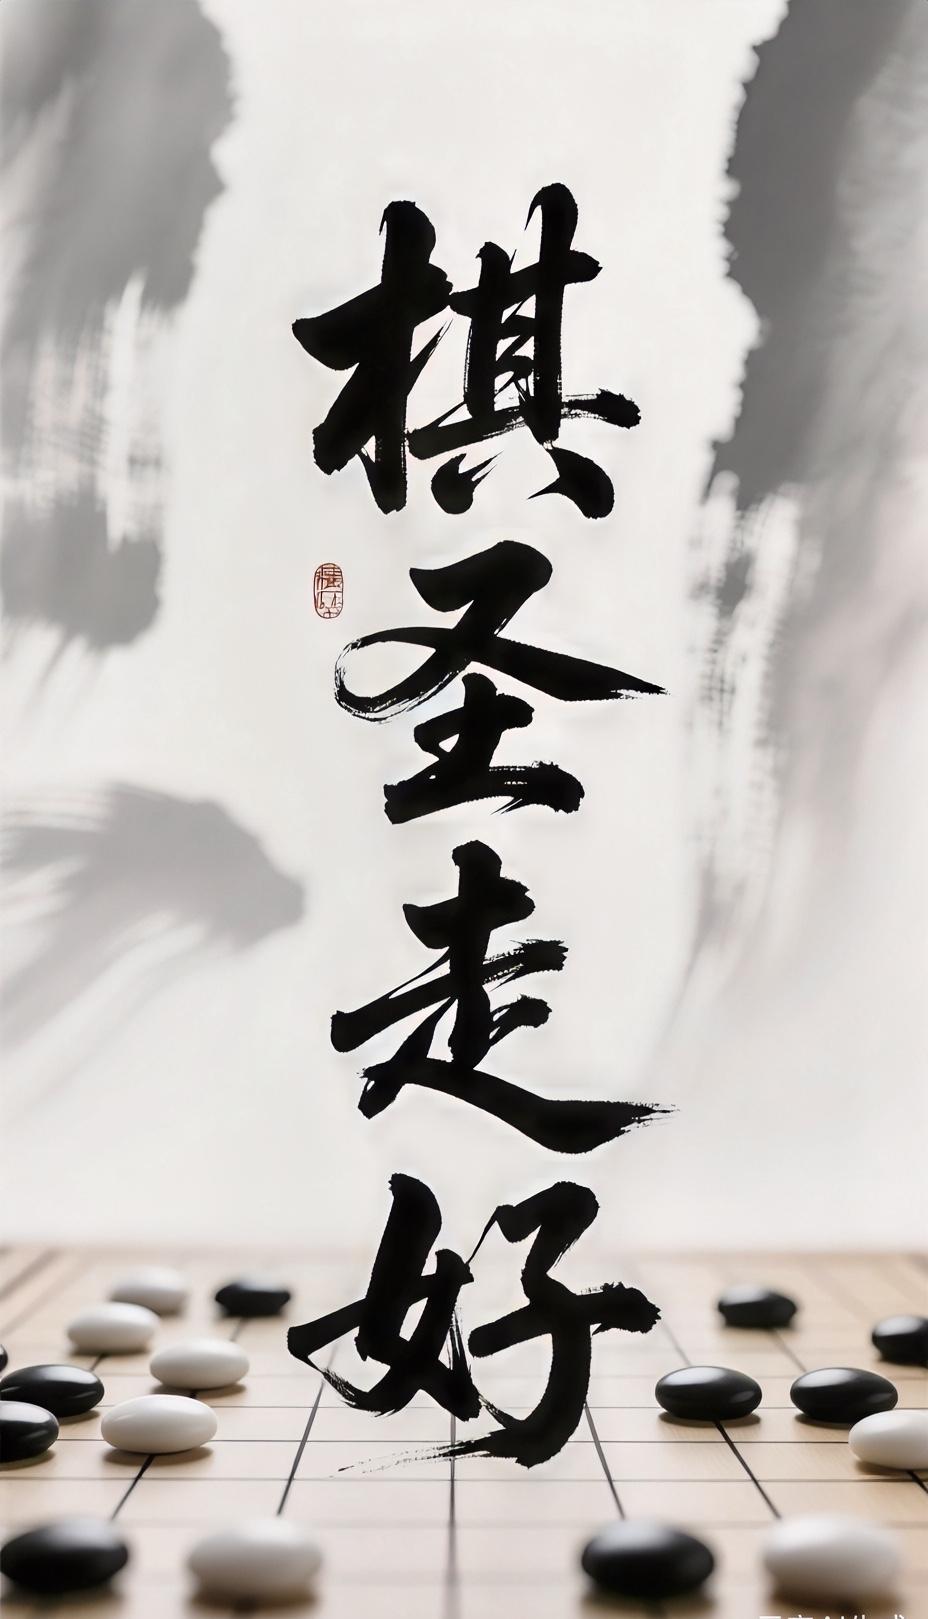 棋圣走好